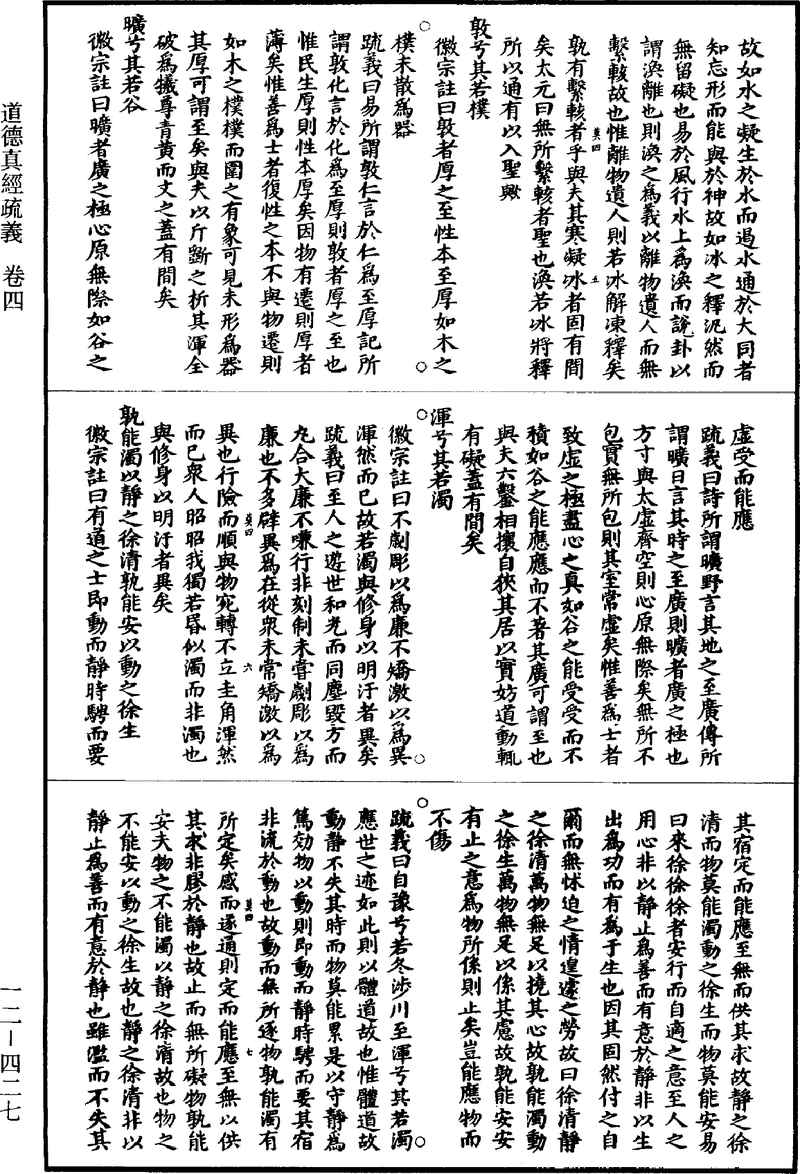 道德真經疏義　卷四
故如水之凝生於水而遏水通於大同者
知忘形而能與於神故如冰之釋泥然而
無留礙也易於風行水上為渙而說卦以
謂渙離也則渙之為義以離物遺人而無
繫輆故也惟離物遺人則若冰解凍釋矣
孰有繫輆者乎與夫其寒凝冰者固有間
矣太元曰無所繫輆者聖也渙若冰將釋
所以通有以入聖歟
敦兮其若樸
徽宗註曰敦者厚之至性本至厚如木之
樸未散為器
疏義曰易所謂敦仁言於仁為至厚記所
謂敦化言於化為至厚則敦者厚之至也
惟民生厚則性本厚矣因物有遷則厚者
薄矣惟善為士者復性之本不與物遷則
如木之樸樸而圍之有象可見未形為器
其厚可謂至矣與夫以斤斵之析其渾全
破為犧尊青黃而文之蓋有間矣
曠兮其若谷
徽宗註曰曠者廣之極心原無際如谷之
虛受而能應
疏義曰詩所謂曠野言其地之至廣傳所
謂曠日言其時之至廣則曠者廣之極也
方寸與太虛齊空則心原無際矣無所不
包實無所包則其室常虛矣惟善為士者
致虛之極盡心之真如谷之能受受而不
積如谷之能應應而不著其廣可謂至也
與夫六鑿相攘自狹其居以實妨道動輒
有礙蓋有間矣
渾兮其若濁
徽宗註曰不劌彫以為廉不矯激以為異
渾然而已故若濁與修身以明汙者異矣
疏義曰至人之遊世和光而同塵毀方而
瓦合大廉不嗛行非刻制未嘗劌彫以為
廉也不多辟異為在從眾未常矯激以為
異也行險而順與物宛轉不立圭角渾然
而已眾人昭昭我獨若昏似濁而非濁也
與修身以明汙者異矣
孰能濁以靜之徐清孰能安以動之徐生
徽宗註曰有道之士即動而靜時騁而要
其宿定而能應至無而供其求故靜之徐
清而物莫能濁動之徐生而物莫能安易
曰來徐徐徐者安行而自適之意至人之
用心非以靜止為善而有意於靜非以生
出為功而有為于生也因其固然付之自
爾而無怵迫之情遑遽之勞故曰徐清靜
之徐清萬物無足以撓其心故孰能濁動
之徐生萬物無足以係其慮故孰能安安
有止之意為物所係則止矣豈能應物而
不傷
疏義曰自豫兮若冬涉川至渾兮其若濁
應世之迹如此則以體道故也惟體道故
動靜不失其時而物莫能累是以守靜為
篤効物以動則即動而靜時騁而要其宿
非流於動也故動而無所逐物孰能濁有
所定矣感而遂通則定而能應至無以供
其求非膠於靜也故止而無所礙物孰能
安夫物之不能濁以靜之徐清故也物之
不能安以動之徐生故也靜之徐清非以
靜止為善而有意於靜也雖濫而不失其
莫四　五
莫四　六
莫四　七
一二—四二七